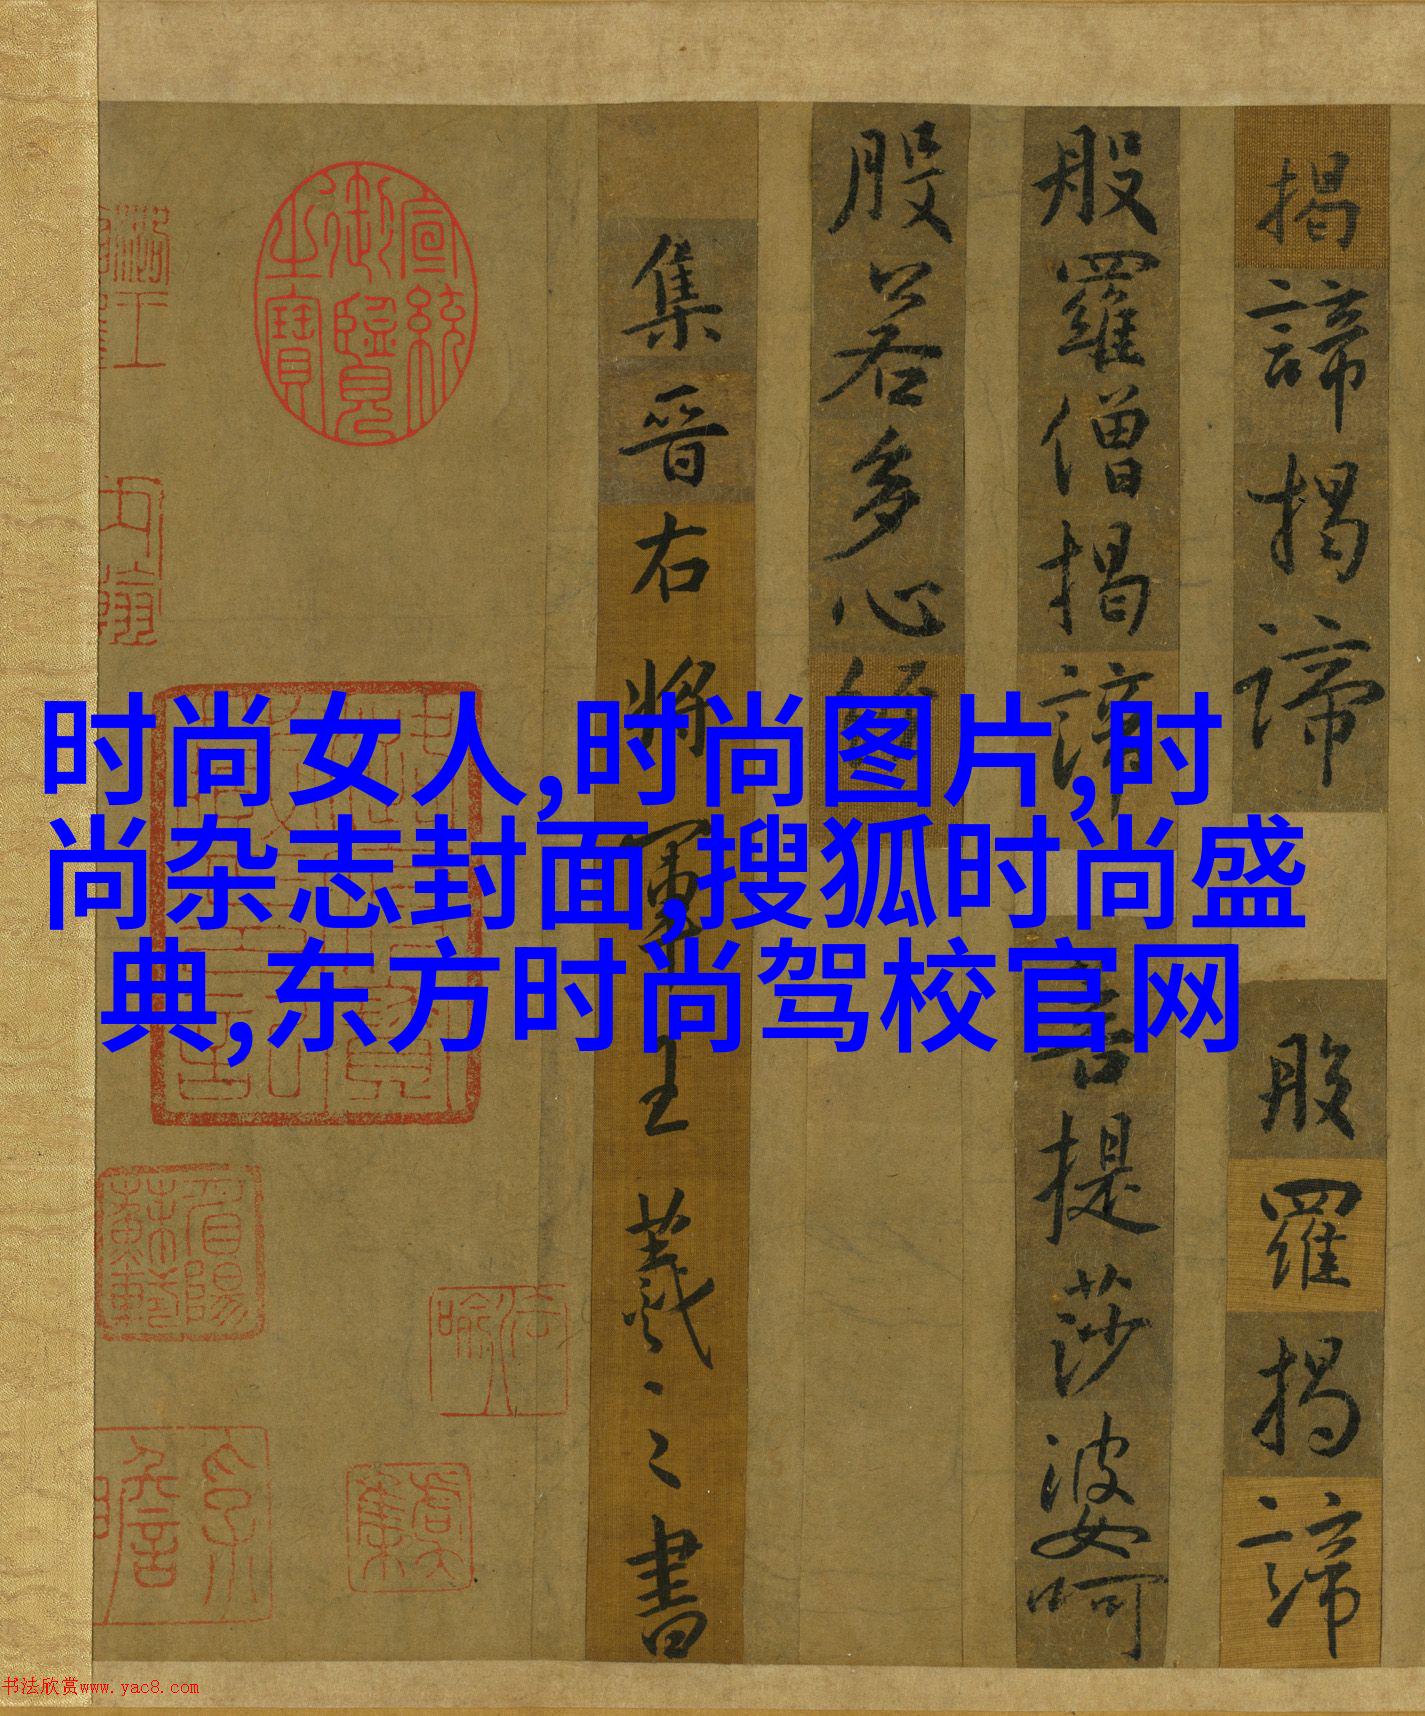 时尚女人,时尚图片,时
尚杂志封面,搜狐时尚盛
典,东方时尚驾校官网
揭諦揭諦 般羅揭諦
般羅僧揭諦 菩提莎婆呵
般若多心經
集晉右將軍王羲之書
宣統御覽之寶
书法欣赏www.yac8.com